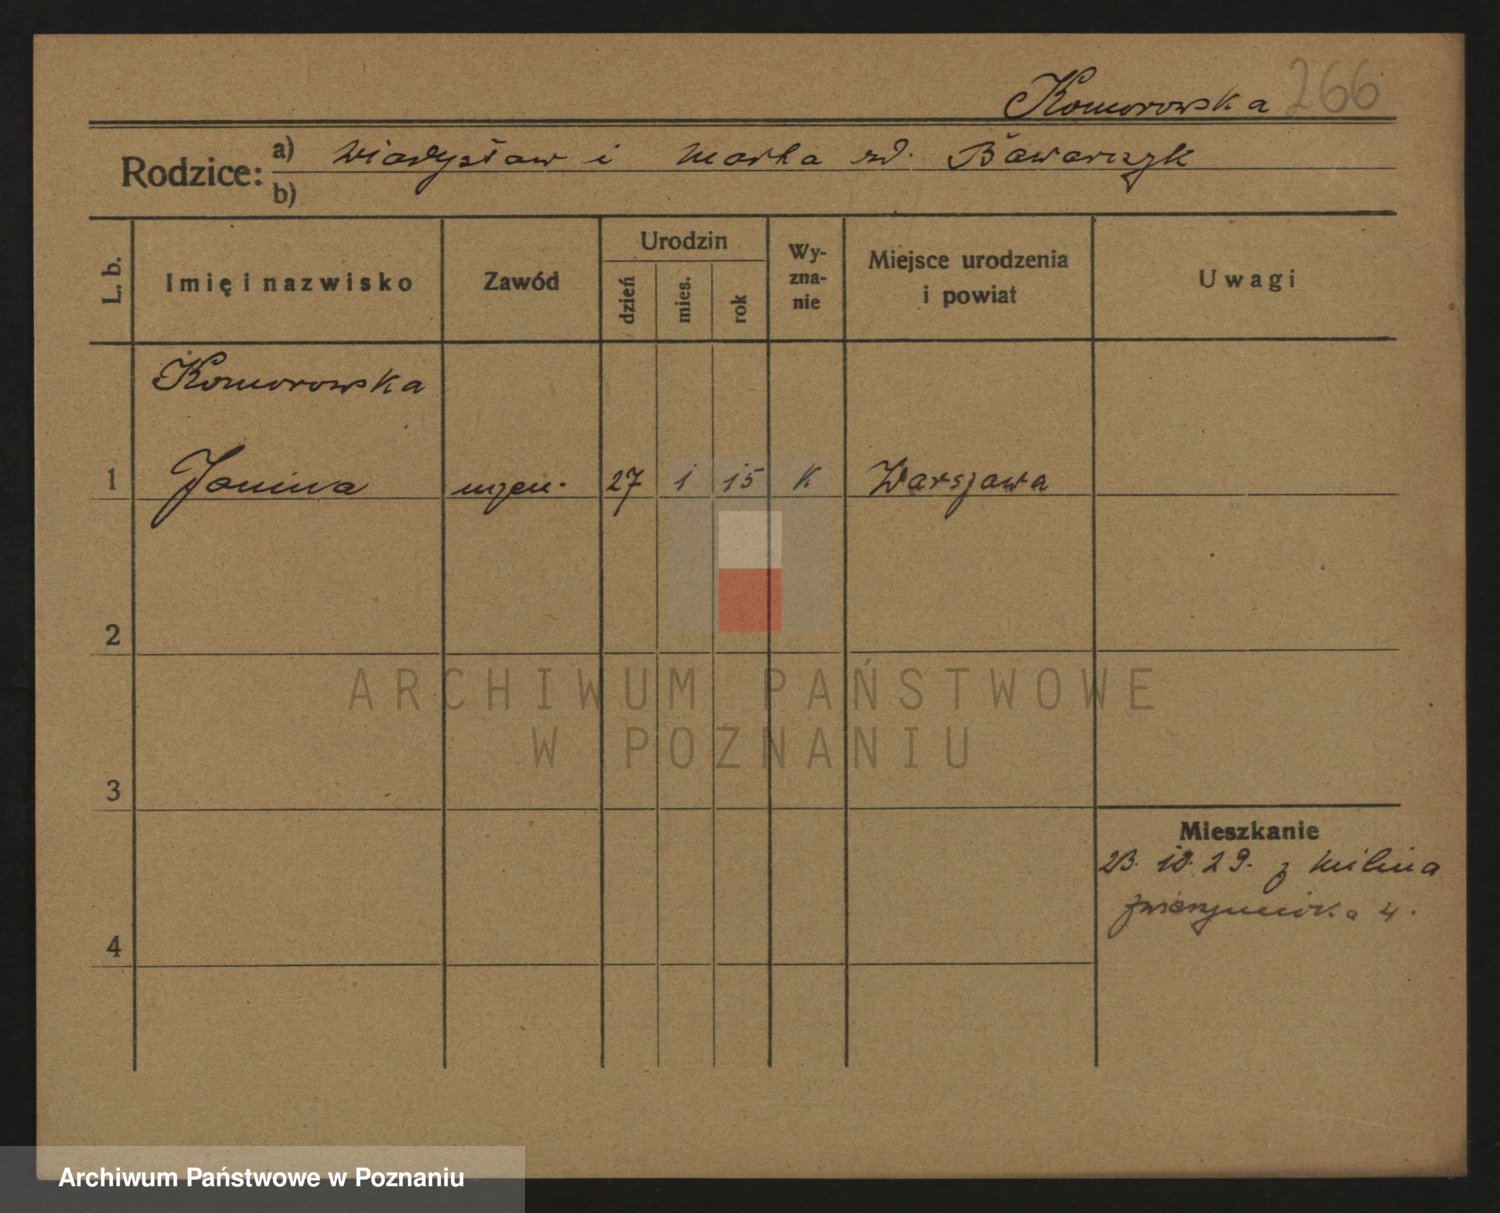 Komorowska 266
Rodzice: a) Władysław i Marta zd. Bawarczyk
b)
L. b. Imię i nazwisko Zawód Urodzin dzień mies. rok Wy-zna-nie Miejsce urodzenia i powiat Uwagi
Komorowska
1 Janina uczen. 27 1 15 K Warszawa
2
3
4
Mieszkanie
23. 10. 29. z
4.
ARCHIWUM PAŃSTWOWE
W POZNANIU
Archiwum Państwowe w Poznaniu